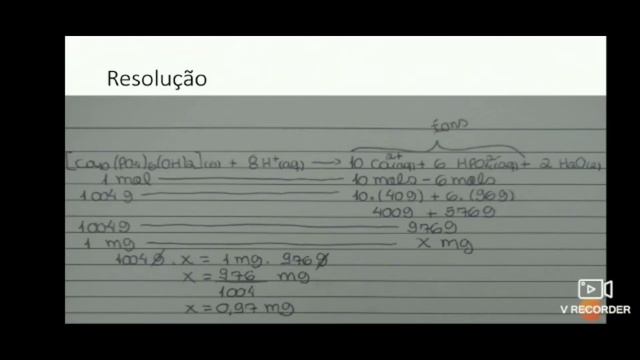 Resolução
íons
[Ca10(PO4)6(OH)2](s) + 8H+(aq) → 10 Ca2+(aq) + 6 HPO42-(aq) + 2 H2O(l)
1 mol 10 mols - 6 mols
1004 g 10.(40g) + 6.(96g)
400g + 576g
1004g 976g
1 mg x mg
1004 g . x = 1 mg . 976 g
x = 976 mg
1004
x = 0,97 mg
V RECORDER